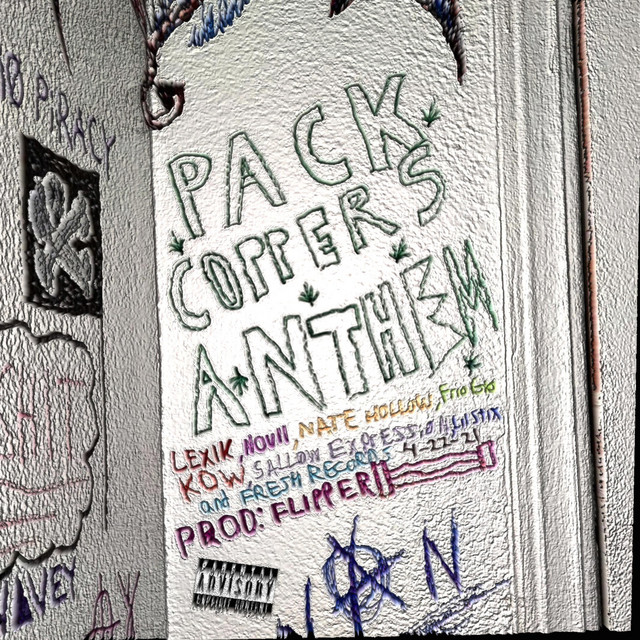 NO PIRACY
PACK
COPPERS
ANTHEM
LEXIK, NOVII, NATE HOLLOW, Frio Gio
KOW, SALLOW EXPRESSION, Lil STIX
and FRESH RECORDS 4-22-21
PROD: FLIPPER
ADVISORY